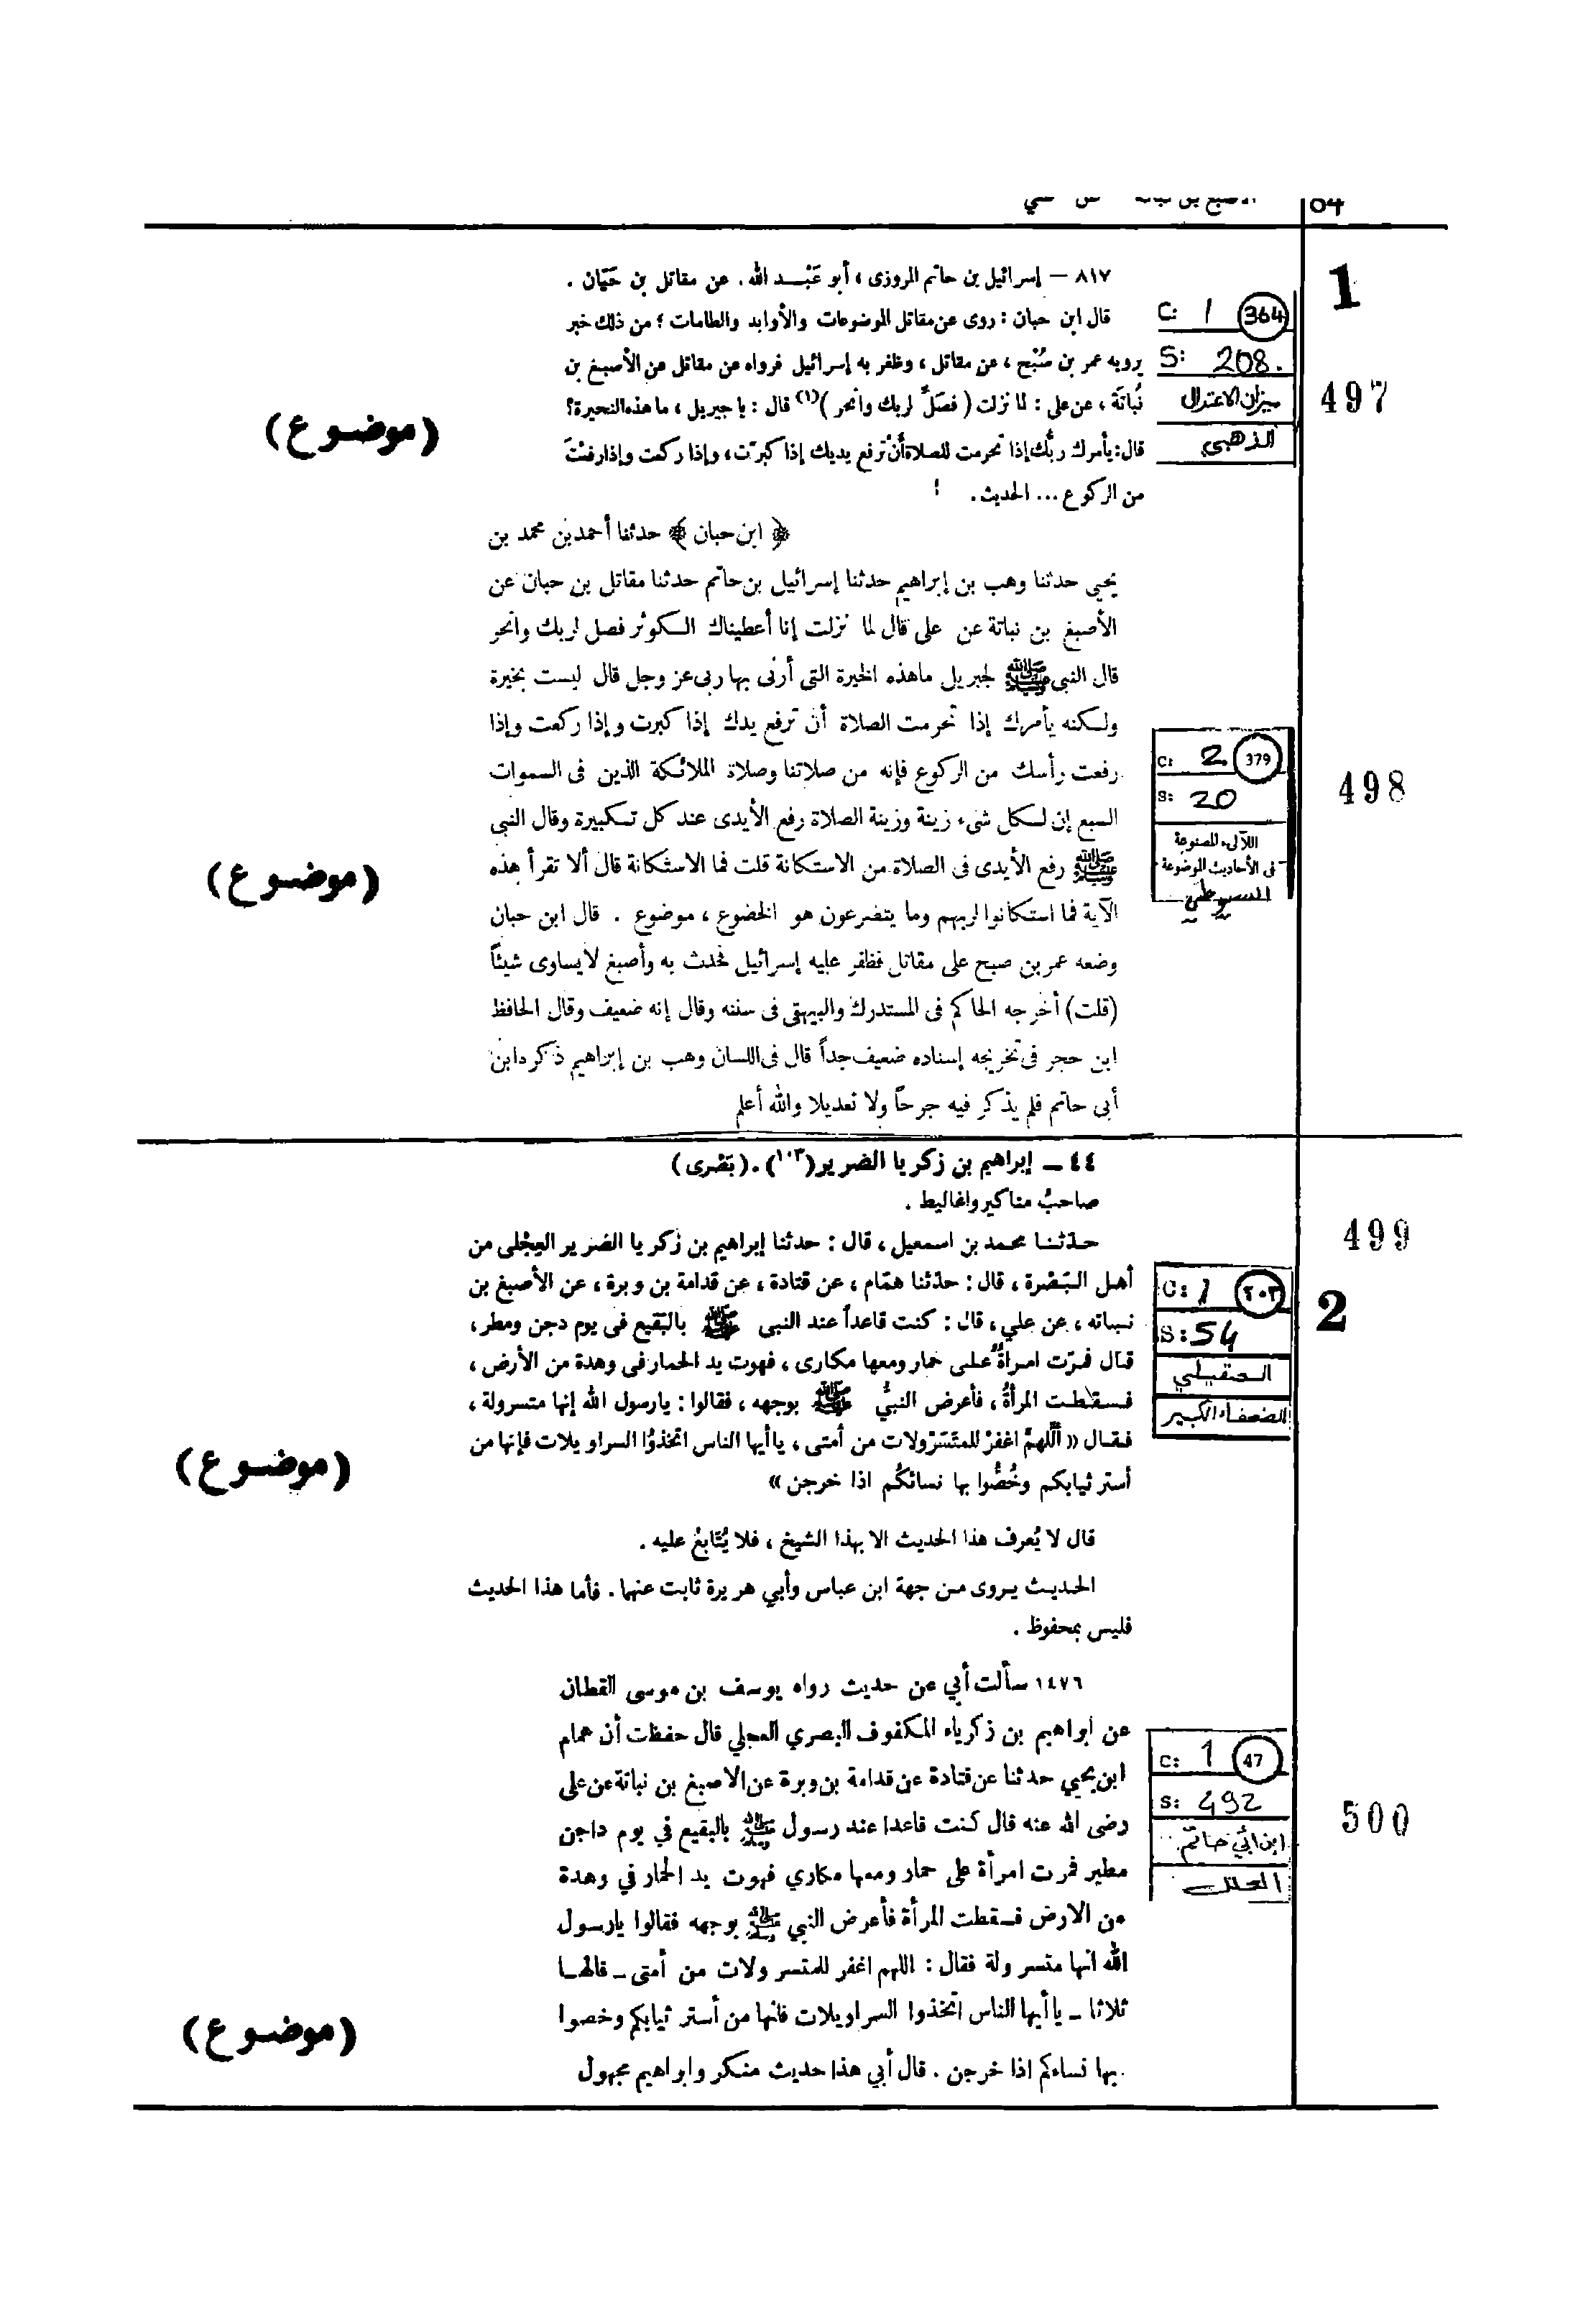 64
1
٨١٧ – إسرائيل بن حاتم المروزى، أبو عَبْد الله. عن مقاتل بن حَيّان.
قال ابن حبان: روى عن مقاتل الموضوعات والأوابد والطامات؛ من ذلك خبر
يرويه عمر بن صُبْح، عن مقاتل، وظفر به إسرائيل فرواه عن مقاتل عن الأصبغ بن
نُباتَة، عن على: لما نزلت (فصَلِّ لربك وانحر)(١) قال: يا جبريل، ما هذه النحيرة؟
قال: يأمرك ربُّك إذا تحرمت للصلاة أنْ ترفع يديك إذا كبرت، وإذا ركعت وإذا رفعْتَ
من الركوع ... الحديث.
C: 1 364
S: 208.
ميزان الاعتدال
الذهبي
497
(موضوع)
﴿ ابن حبان ﴾ حدثنا أحمد بن محمد بن
يحيى حدثنا وهب بن إبراهيم حدثنا إسرائيل بن حاتم حدثنا مقاتل بن حبان عن
الأصبغ بن نباتة عن على قال لما نزلت إنا أعطيناك الكوثر فصل لربك وانحر
قال النبى ﷺ لجبريل ماهذه الخيرة التى أرنى بها ربى عز وجل قال ليست بخيرة
ولكنه يأمرك إذا تحرمت الصلاة أن ترفع يدك إذا كبرت وإذا ركعت وإذا
رفعت رأسك من الركوع فإنه من صلاتنا وصلاة الملائكة الذين فى السموات
السبع إن لكل شىء زينة وزينة الصلاة رفع الأيدى عند كل تكبيرة وقال النبى
ﷺ رفع الأيدى فى الصلاة من الاستكانة قلت فما الاستكانة قال ألا تقرأ هذه
الآية فما استكانوا لربهم وما يتضرعون هو الخضوع، موضوع. قال ابن حبان
وضعه عمر بن صبح على مقاتل فظفر عليه إسرائيل فحدث به وأصبغ لا يساوى شيئاً
(قلت) أخرجه الحاكم فى المستدرك والبيهقى فى سننه وقال إنه ضعيف وقال الحافظ
ابن حجر فى تخريجه إسناده ضعيف جداً قال فى اللسان وهب بن إبراهيم ذكره ابن
أبى حاتم فلم يذكر فيه جرحاً ولا تعديلا والله أعلم
C: 2 379
S: 20
اللآلىء المصنوعة
فى الأحاديث الموضوعة
السيوطي
498
(موضوع)
٤٤ – إبراهيم بن زكريا الضرير(١٠٣). (بَصْرى)
صاحبُ مناكير واغاليط.
حدّثنا محمد بن اسمعيل، قال: حدثنا إبراهيم بن زكريا الضرير العِجْلى من
أهل البَصْرة، قال: حدّثنا همّام، عن قتادة، عن قدامة بن وبرة، عن الأصبغ بن
نباته، عن علي، قال: كنت قاعداً عند النبى ﷺ بالبَقيع فى يوم دجن ومطر،
قال فمرّت امرأةٌ على حمار ومعها مكارى، فهوت يد الحمار فى وهدة من الأرض،
فسقطت المرأةُ، فأعرض النبيُّ ﷺ بوجهه، فقالوا: يارسول الله إنها متسرولة،
فقال «اللّهمّ اغفرْ للمتَسَرْولات من أمتى، ياأيها الناس اتخذوُا السراويلات فإنها من
أستر ثيابكم وخُصُّوا بها نسائكُم اذا خرجن»
قال لا يُعرف هذا الحديث الا بهذا الشيخ، فلا يُتَابعْ عليه.
الحديث يروى من جهة ابن عباس وأبي هريرة ثابت عنهما. فأما هذا الحديث
فليس بمحفوظ.
C: 1 ٢٠٣
S: 54
العقيلي
الضعفاء الكبير
499
2
(موضوع)
١٤٧٦ سألت أبي عن حديث رواه يوسف بن موسى القطان
عن ابراهيم بن زكرياء المكفوف البصري العجلي قال حفظت أن همام
ابن يحيي حدثنا عن قتادة عن قدامة بن وبرة عن الاصبغ بن نباتة عن على
رضى الله عنه قال كنت قاعدا عند رسول ﷺ بالبقيع في يوم داجن
مطير فمرت امرأة على حمار ومعها مكاري فهوت يد الحمار في وهدة
من الارض فسقطت المرأة فأعرض النبي ﷺ بوجهه فقالوا يارسول
الله انها متسرولة فقال: اللهم اغفر للمتسرولات من أمتى – قالها
ثلاثا – ياأيها الناس اتخذوا السراويلات فانها من أستر ثيابكم وخصوا
بها نساءكم اذا خرجن. قال أبي هذا حديث منكر وابراهيم مجهول
C: 1 47
S: 492
ابن أبي حاتم
العلل
500
(موضوع)